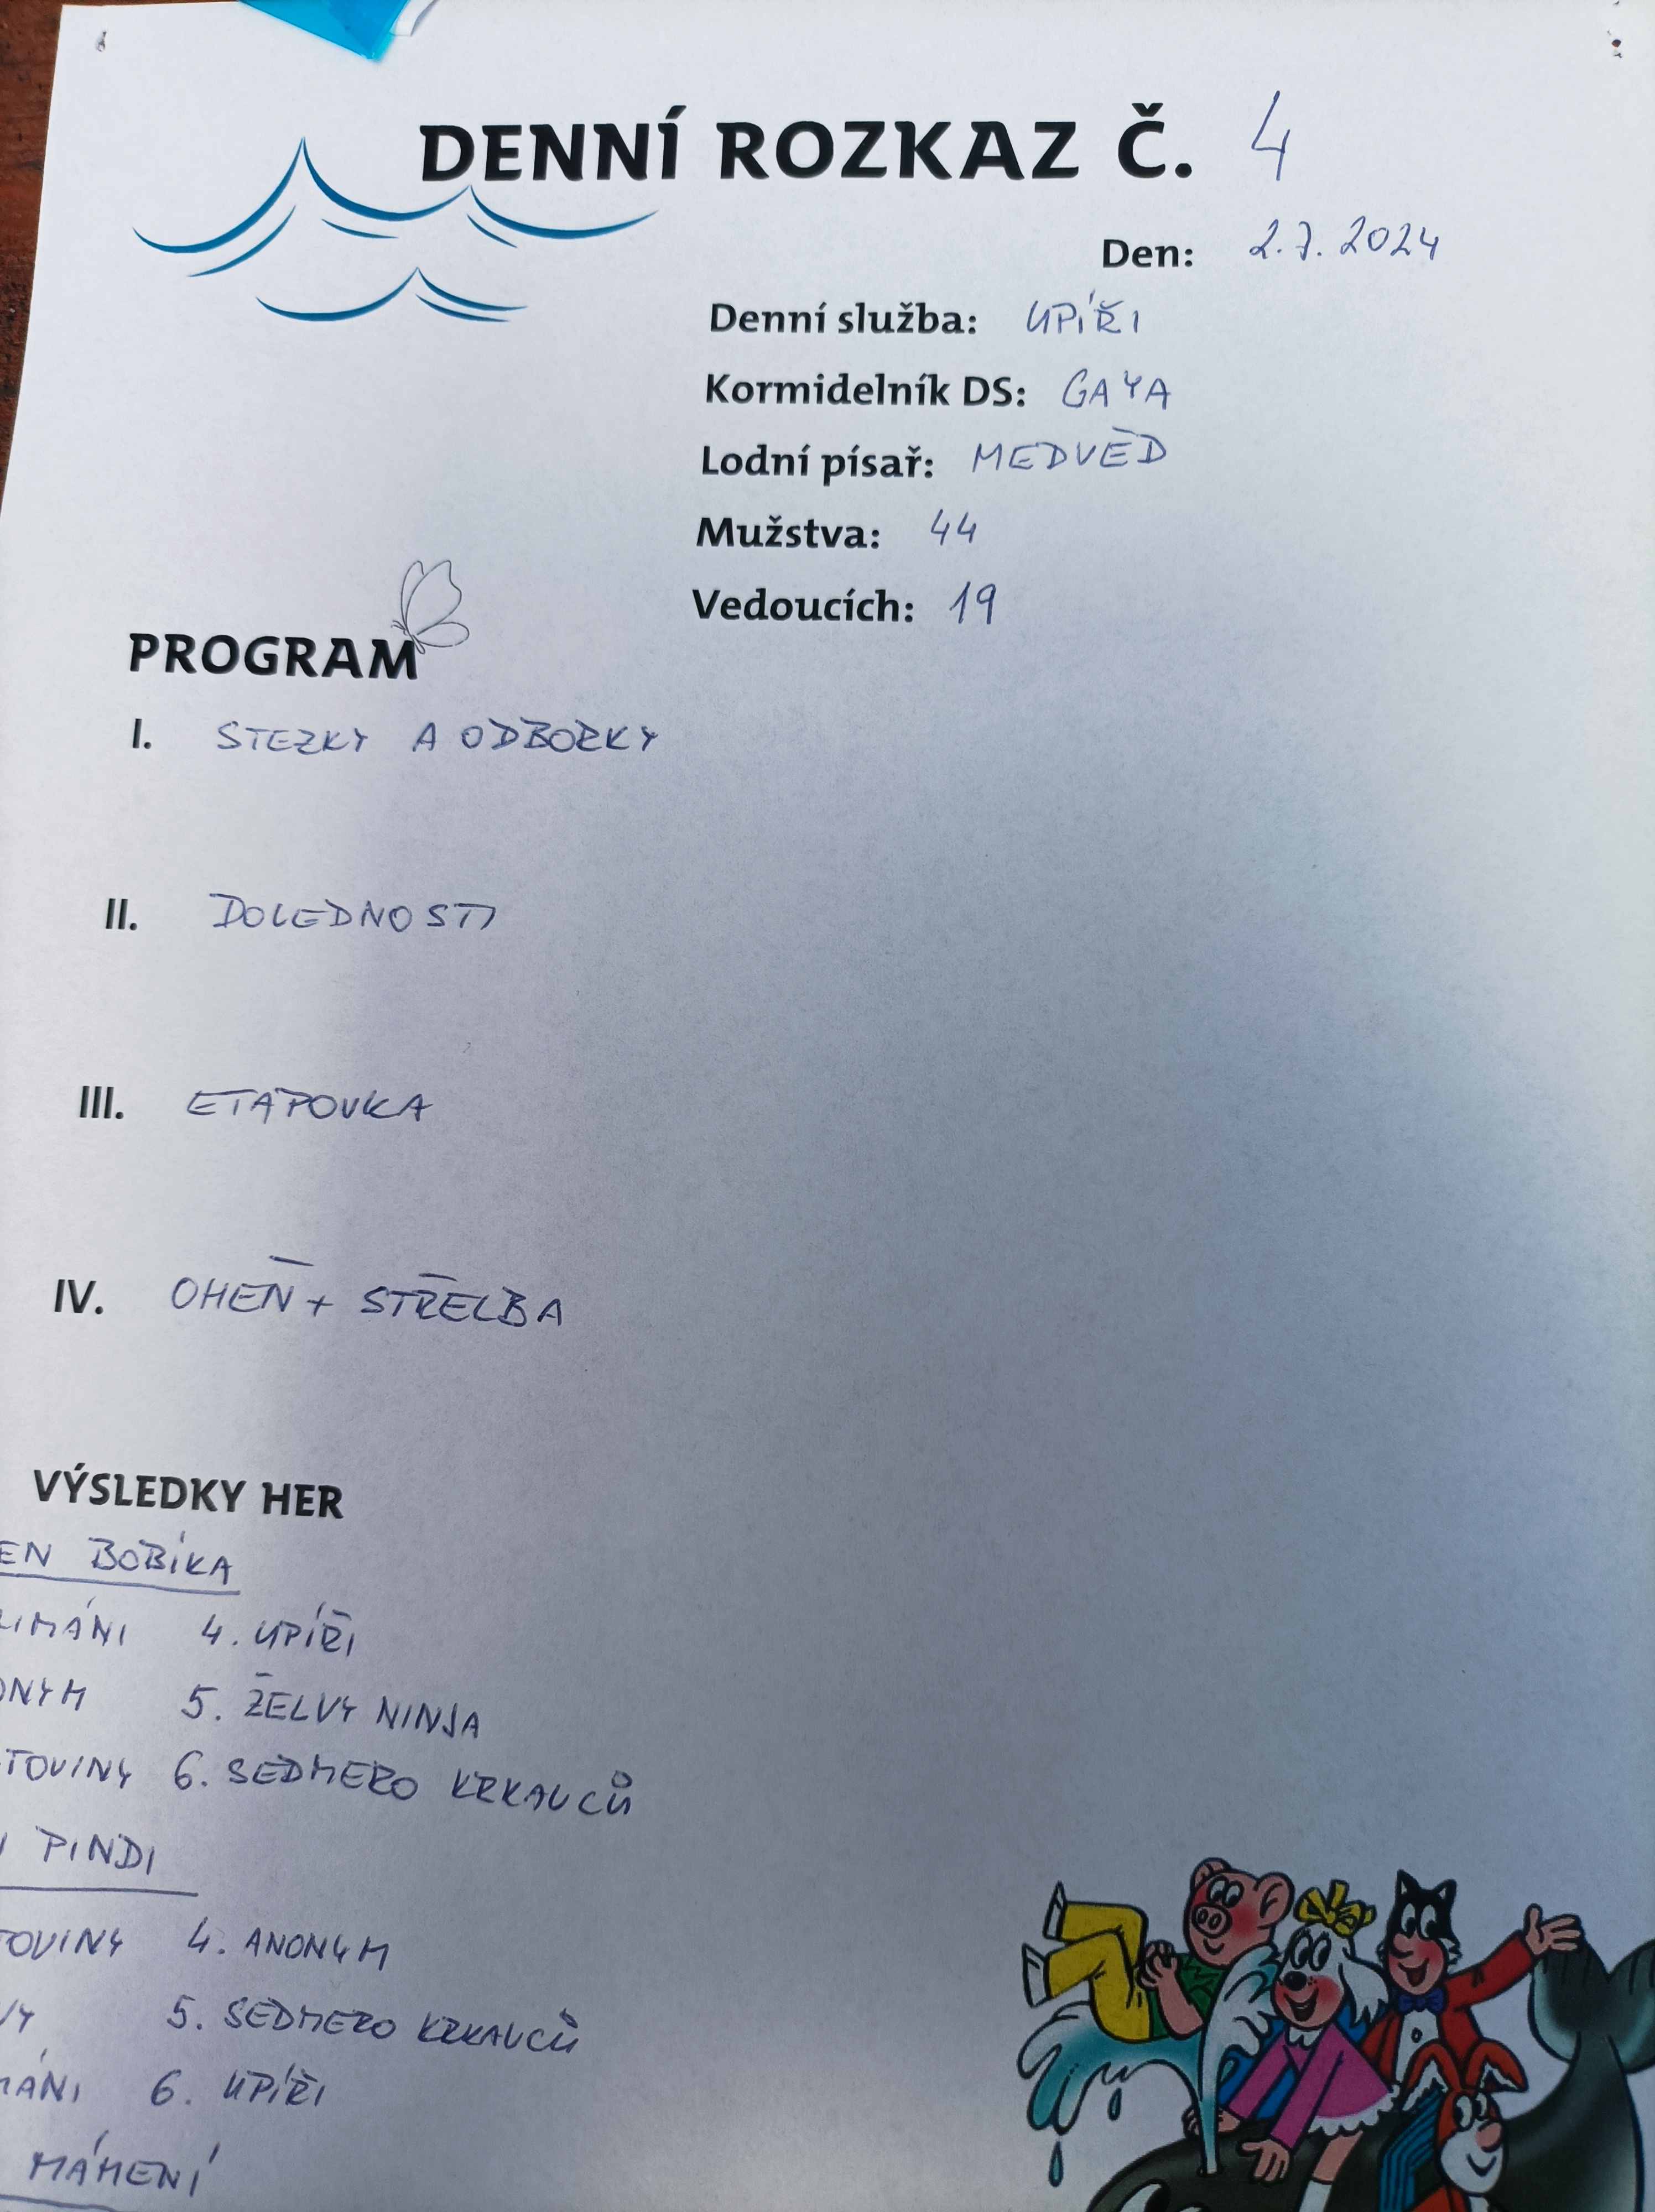 DENNÍ ROZKAZ Č. 4
Den: 2.7.2024
Denní služba: UPÍŘI
Kormidelník DS: GAYA
Lodní písař: MEDVĚD
Mužstva: 44
Vedoucích: 19
PROGRAM
I. STEZKY A ODBORKY
II. DOLEDNOSTI
III. ETAPOVKA
IV. OHEŇ + STŘELBA
VÝSLEDKY HER
EN BOBÍKA
LIMÁNI 4. UPÍŘI
ONYM 5. ŽELVY NINJA
TOVINY 6. SEDMERO KRKAVCŮ
PINDI
TOVINY 4. ANONYM
VY 5. SEDMERO KRKAVCŮ
MÁNI 6. UPÍŘI
MÁMENÍ